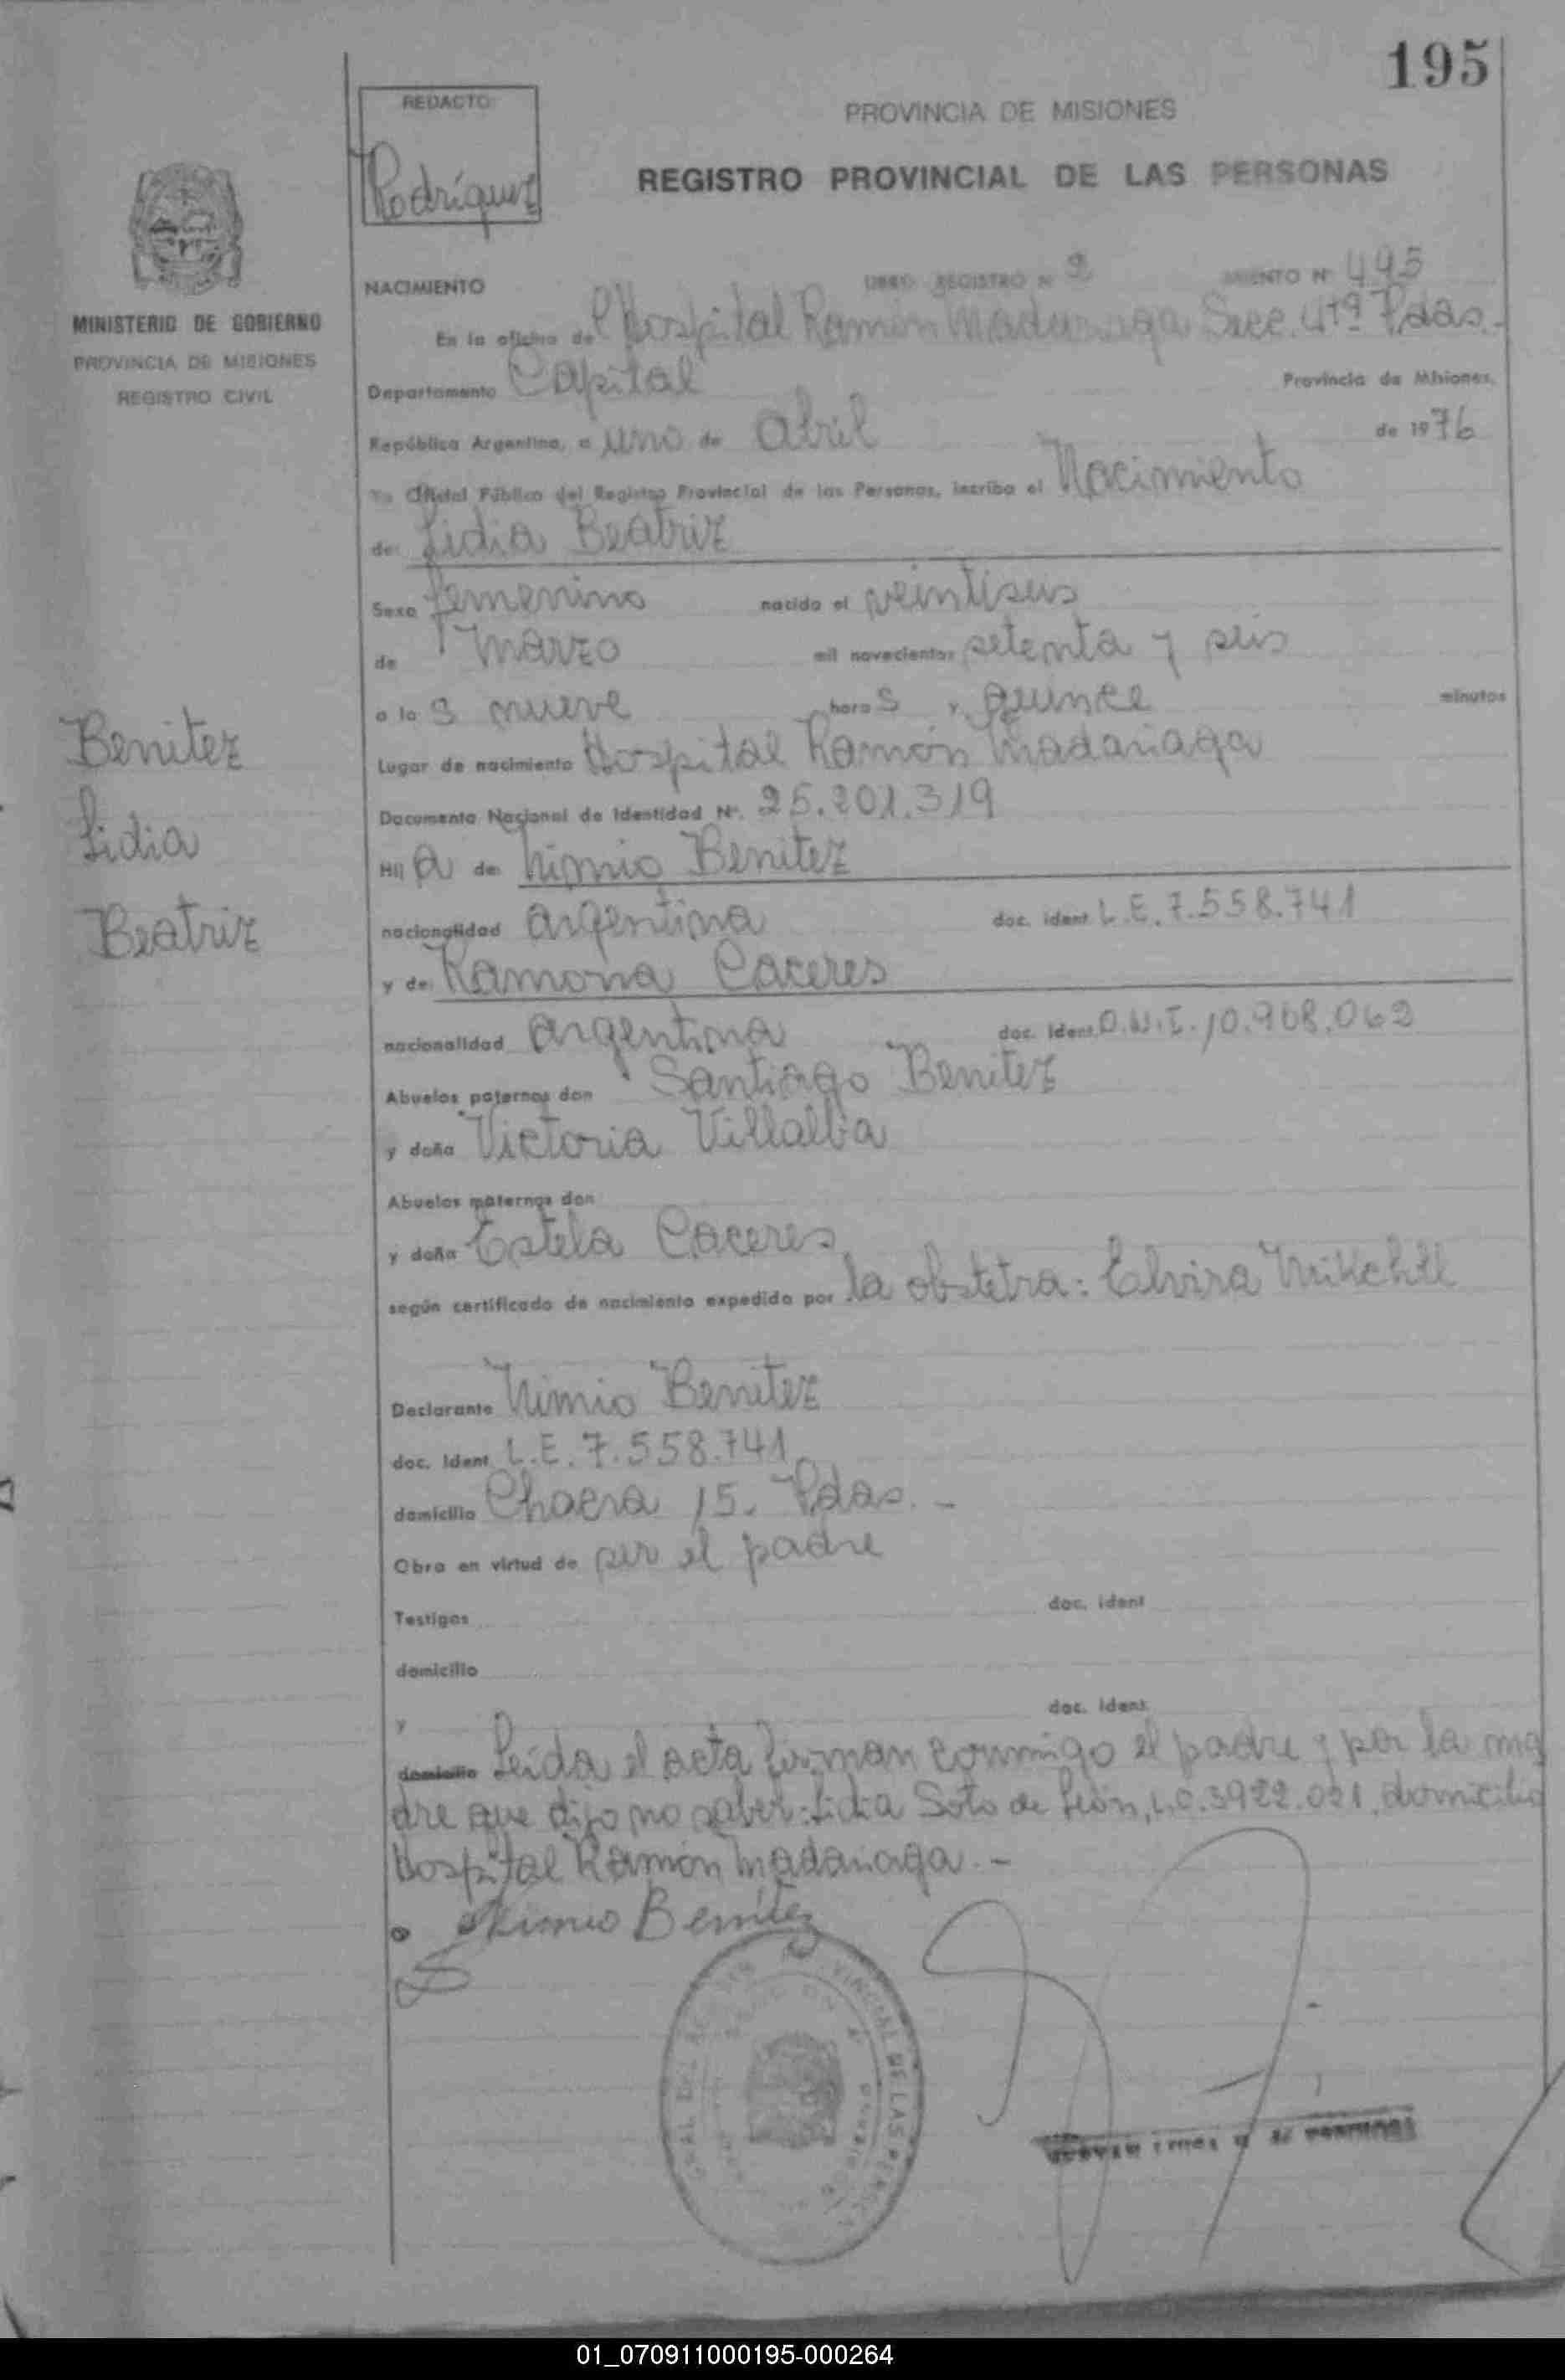 195
REDACTO
Rodríguez
PROVINCIA DE MISIONES
REGISTRO PROVINCIAL DE LAS PERSONAS
MINISTERIO DE GOBIERNO
PROVINCIA DE MISIONES
REGISTRO CIVIL
Benitez
Lidia
Beatriz
NACIMIENTO LIBRO REGISTRO Nº 2 MIENTO Nº 495
En la oficina de Hospital Ramón Madariaga Secc. 4tª Pdas.-
Departamento Capital Provincia de Misiones,
República Argentina, a uno de Abril de 1976
Yo Oficial Público del Registro Provincial de las Personas, inscribo el Nacimiento
de: Lidia Beatriz
Sexo femenino nacido el veintiseis
de Marzo mil novecientos setenta y seis
a las nueve horas y quince minutos
Lugar de nacimiento Hospital Ramón Madariaga
Documento Nacional de Identidad Nº. 25.201.319
Hija de: Nimio Benitez
nacionalidad argentina doc. ident L.E. 7.558.741
y de: Ramona Caceres
nacionalidad argentina doc. ident. D.N.I. 10.968.062
Abuelos paternos don Santiago Benitez
y doña Victoria Villalba
Abuelos maternos don
y doña Estela Caceres
según certificado de nacimiento expedido por la obstetra: Elvira
Declarante Nimio Benitez
doc. ident L.E. 7.558.741
domicilio Chacra 15. Pdas. -
Obra en virtud de ser el padre
Testigos doc. ident
domicilio
y doc. ident.
domicilio Leída el acta firman conmigo el padre y por la ma
dre que dijo no saber: Lidia Soto de León, L.C. 3922.021, domicilio
Hospital Ramón Madariaga. -
Nimio Benitez
01_070911000195-000264